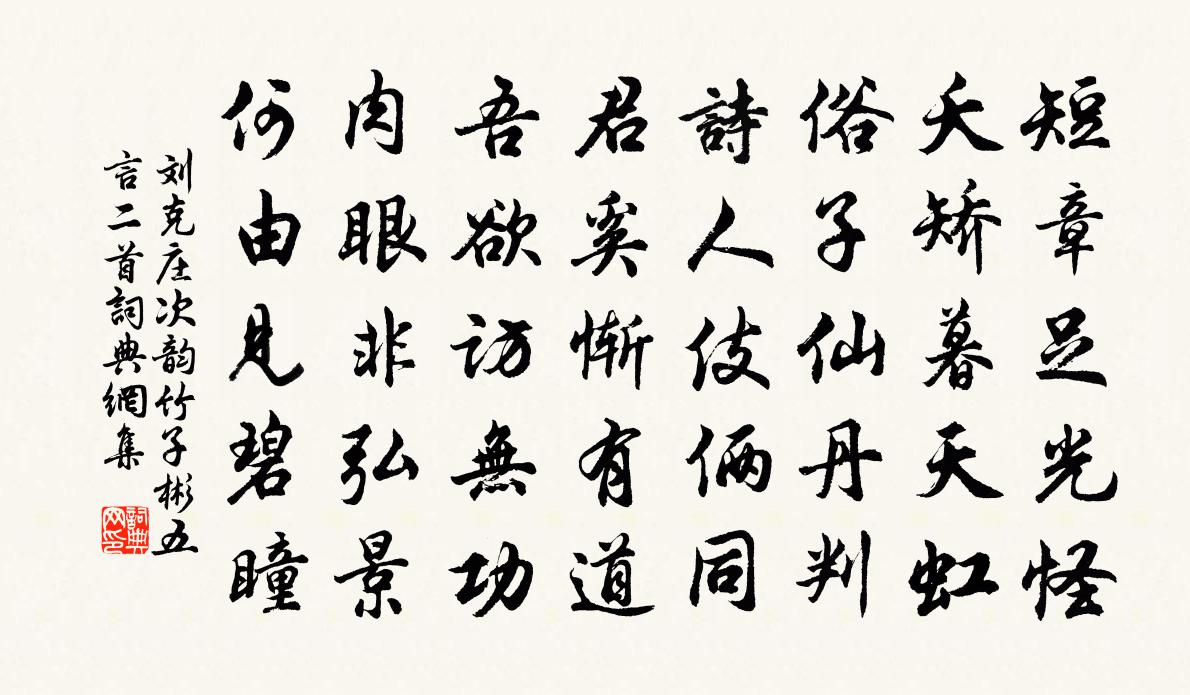 短章足光怪
夭矫暮天虹
俗子仙丹判
詩人伎俩同
君奚惭有道
吾欲访無功
肉眼非弘景
何由見碧瞳
刘克庄次韵竹子彬五
言二首詞典網集